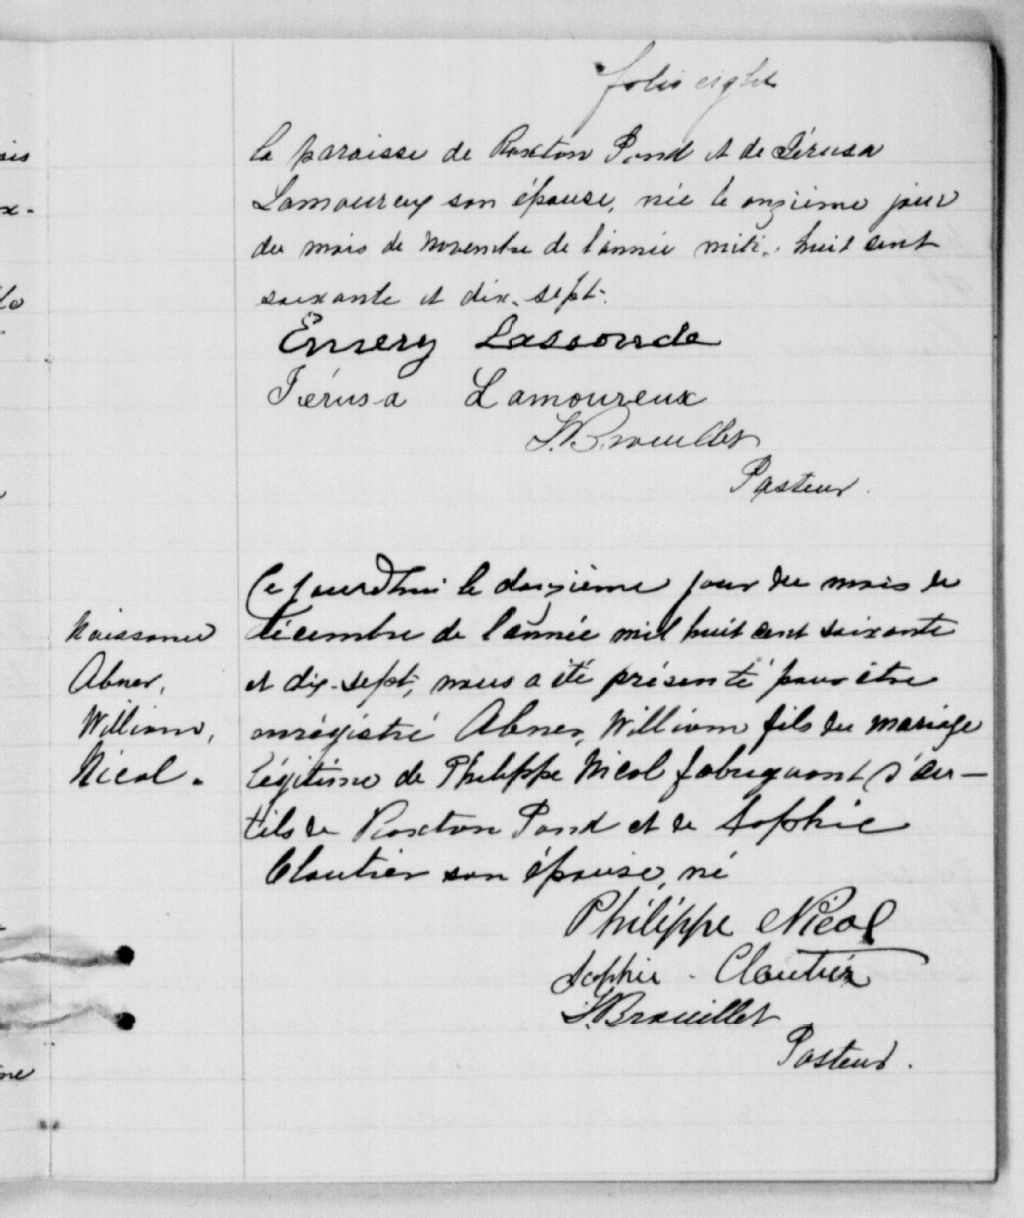 folio eight
la paroisse de Roxton Pond et de Jérusa
Lamoureux son épouse, née le onzième jour
du mois de Novembre de l'année mil, huit cent
soixante et dix-sept.
Emery Lassonde
Jérusa Lamoureux
Brouillet
Pasteur.
Ce jourd'hui le douzième jour du mois de
Décembre de l'année mil huit cent soixante
et dix-sept, nous a été présenté pour être
enrégistré Abner, William fils du mariage
légitime de Philippe Nicol fabriquant d'ou-
tils de Roxton Pond et de Sophie
Cloutier son épouse, né
Naissance
Abner,
William,
Nicol.
Philippe Nicol
Sophie Cloutier
Brouillet
Pasteur.